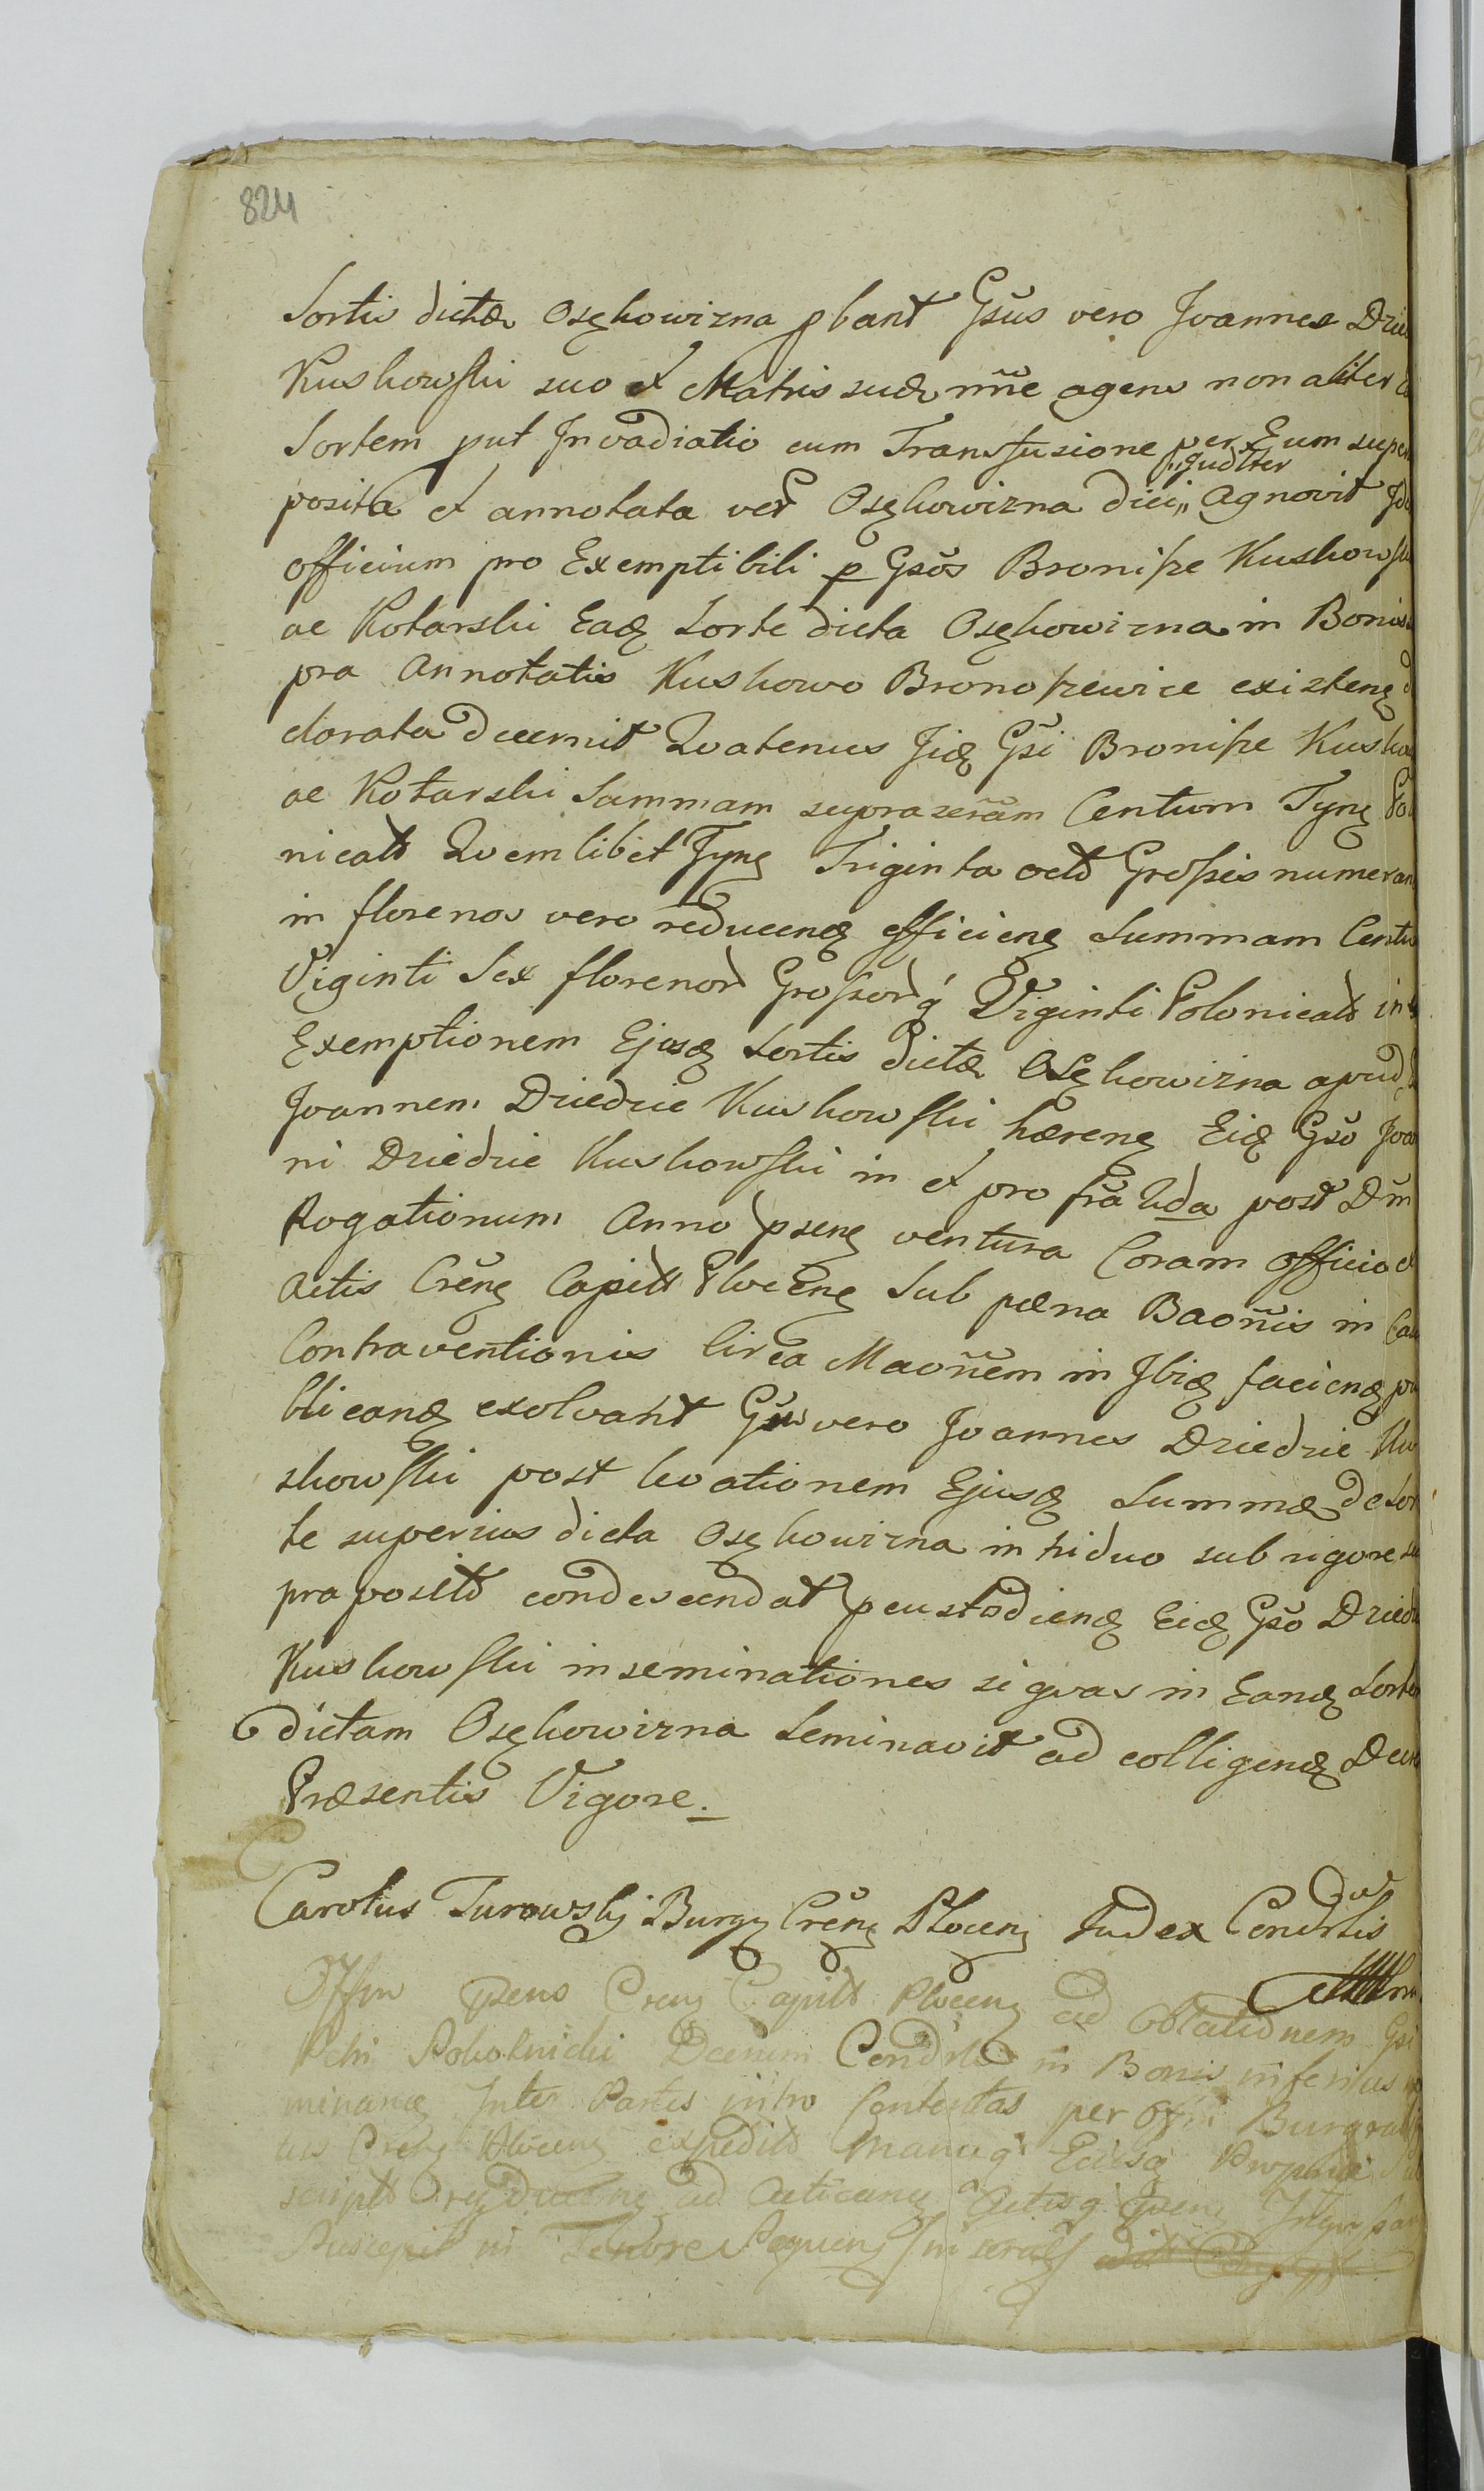 824
Sortis dictæ Osękowizna pbant Gsus vero Joannes Dzie
Kuskowski suo et Matris suæ nne agens non aliter
Sortem put Invadiatio cum Transfusione per Eum super
posita et annotata vet Osękowizna dici „qudlter„ Agnovit
officium pro Exemptibili p Gsos Bronisze Kuskowski
ac Kotarski Eadq Sorte dicta Osękowizna in Bonis
pra Annotatis Kuskowo Bronoszewice existenq
clarata decernit Quatenus Jidq Gsi Bronisze Kusko
ac Kotarski Summam supraseram Centum Tynę Polo
nicalt Quemlibet Tynę Triginta octo Grossis numeran
in florenos vero reducendę efficienę Summam Centu
Viginti Sex florenor Grossorq Viginti Polonicalt in
Exemptionem Ejusdę Sortis dictæ Osękowizna apud
Joannem Dziedzic Kuskowski hærenę Eidę Gso Joan
ni Dziedzic Kuskowski in et pro fria 2da post Dm
Rogationum Anno psenę ventura Coram officio et
Actis Crenę Capitt Plocenę Sub pæna Baonis in Ca
Contraventionis circa Maonem in Ibidę faciendę pu
blicandę exolvant Gsus vero Joannes Dziedzic Ku
skowski post levationem Ejusdę Summæ de Sor
te superius dicta Osękowizna in triduo sub rigore su
praposito condescendat pcustodiendę Eidę Gso Dziedz
Kuskowski inseminationes si quas in Eandę Sortem
dictam Osękowizna Seminavit ad colligendę Decre
Præsentis Vigore.
Carolus Turowskj Burgę Crenę Plocenę Judex Condrlis
Offm psens Crenę Capitt Plocenę ad Oblationem Gsi
Pokolnicki Decrum Condrle in Bonis inferius no
minandę Inter Partes intro Contentas per Offm Burgrabi
tus Crenę Plocenę expedito Manuq Ejusdę Propria Sub
script ad Acticandę Actisq psenę
Suscepit in Tenore Sequenę in seralt